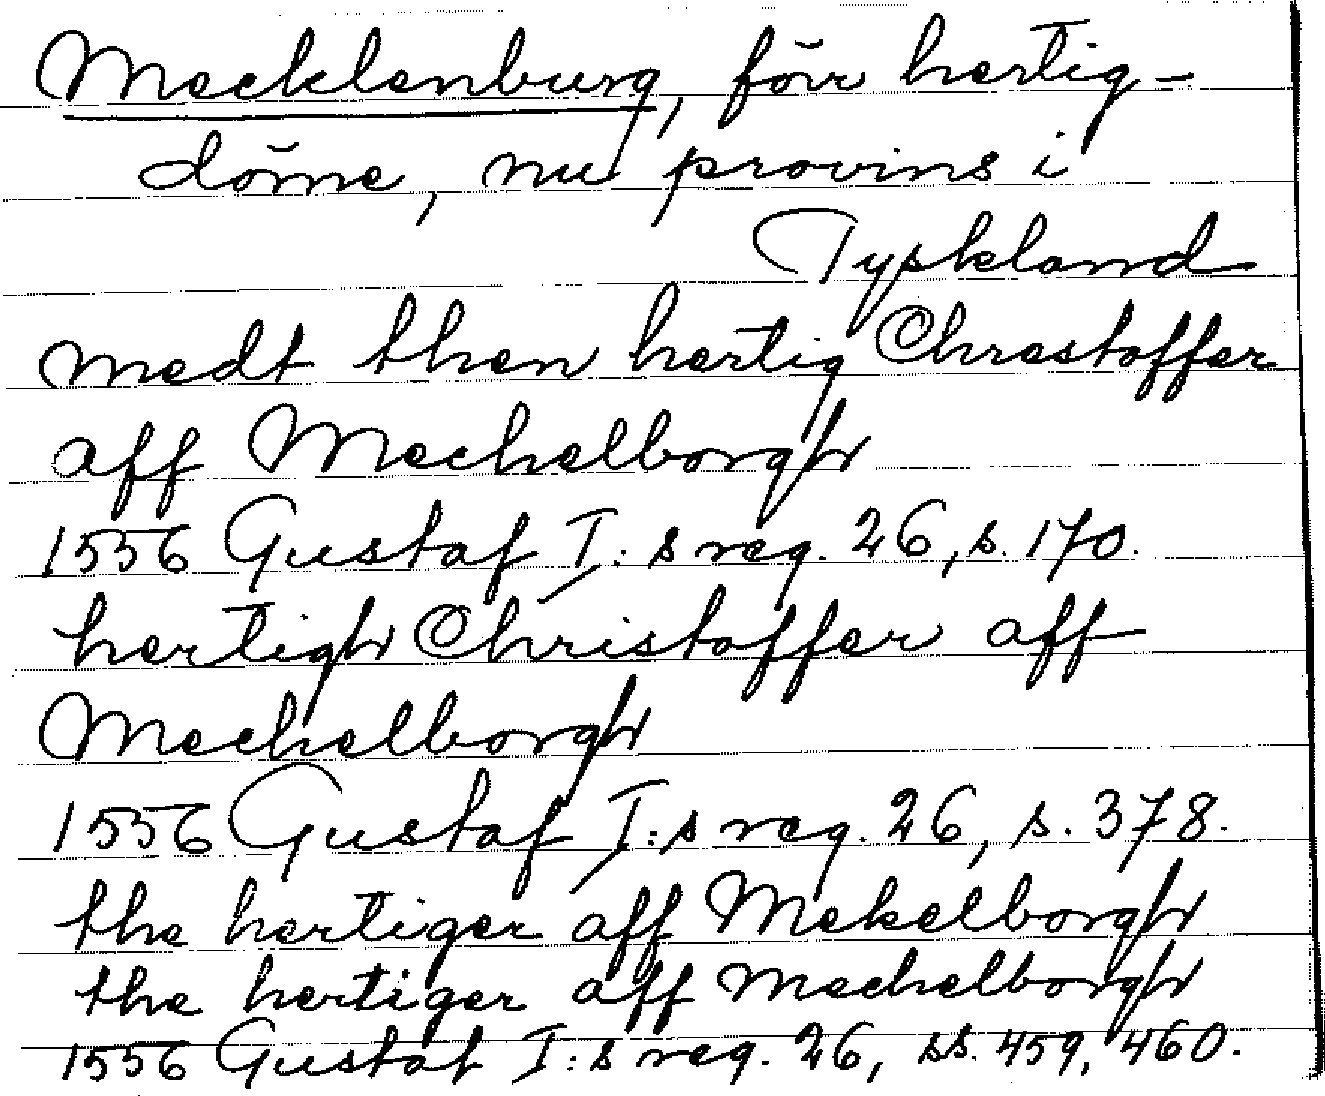 Mecklenburg, förr hertig-
döme, nu provins i
Tyskland
medt then hertig Chrestoffer
aff Mechelborgh
1556 Gustaf I:s reg. 26, s. 170.
hertigh Christoffer aff
Mechelborgh
1556 Gustaf I:s reg. 26, s. 378.
the hertiger aff Mekelborgh
the hertiger aff Mechelborgh
1556 Gustaf I:s reg. 26, ss. 459, 460.